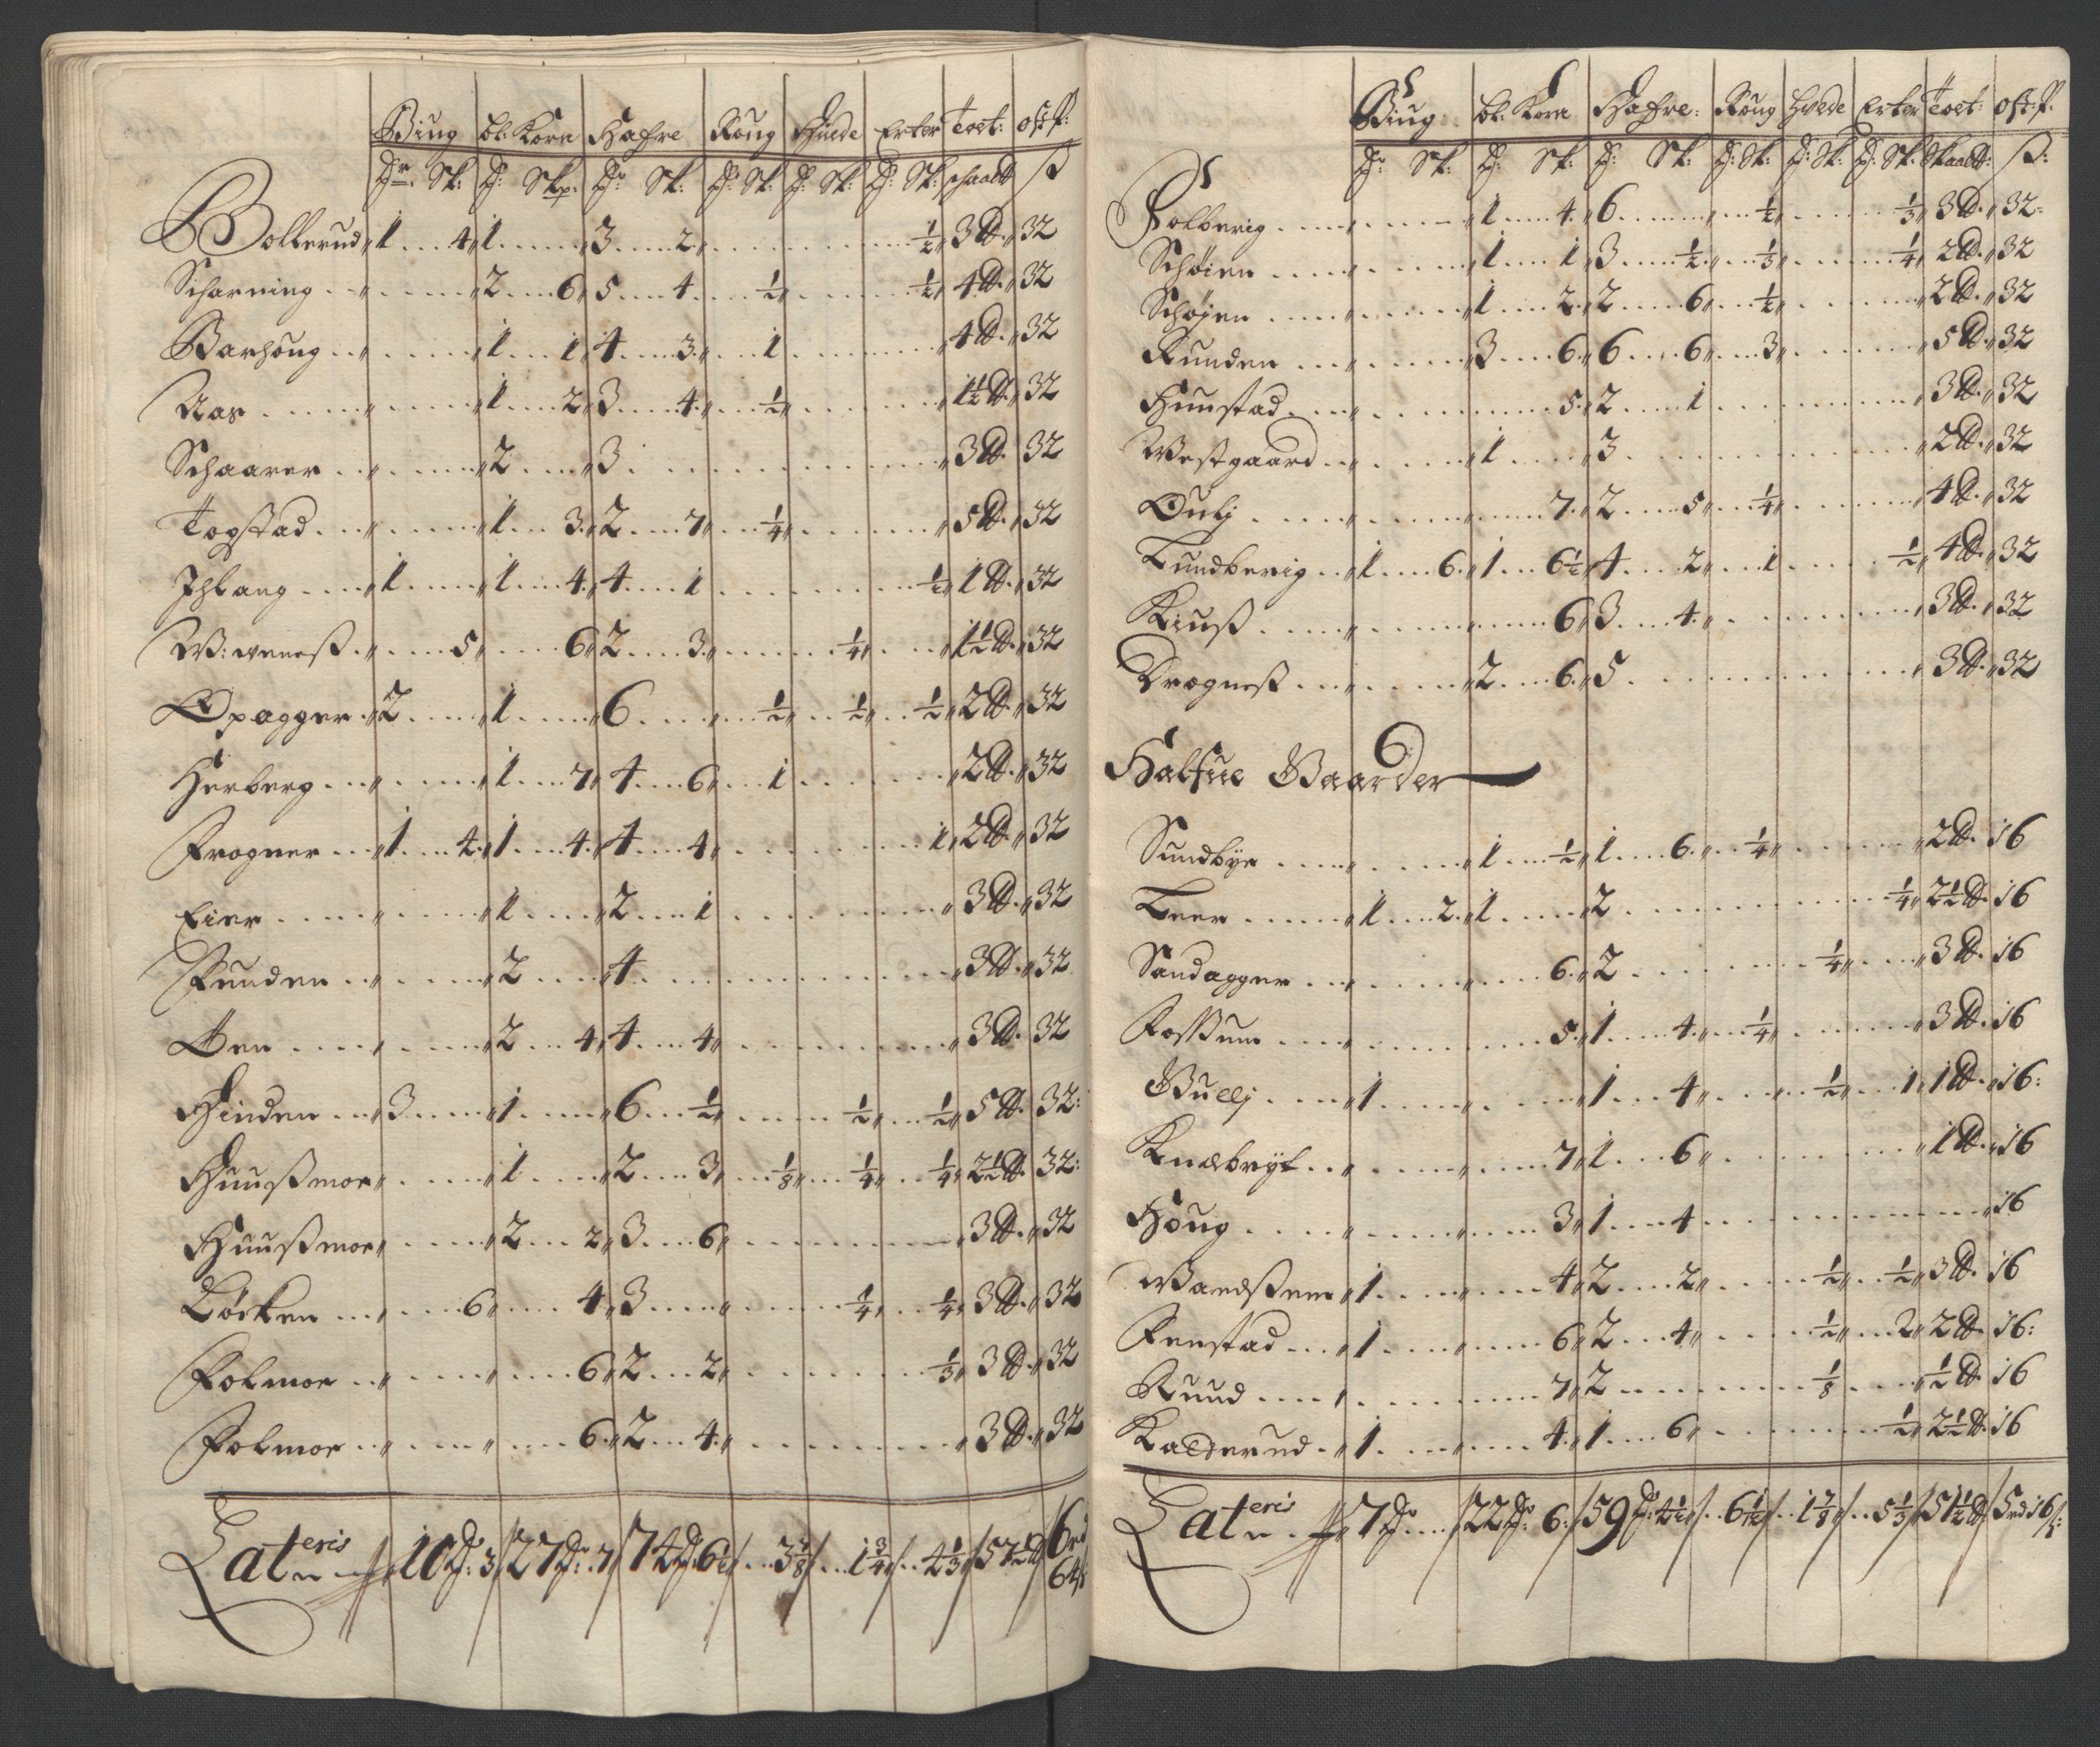 Biug bl: Korn Hafre Roug Huede Erter Tort: Ost ℔:
Tr. Sk: Tr: Skp. Tr: Sk: Tr: Sk: Tr: Sk: Tr: Sk: schaalt ß
Bollerud 1 .. 4 1 .... 3 .. 2 .... ½ 3 ℔. 32
Scharning .... 2 .. 6 5 .. 4 .. ½ .... ½ 4 ℔. 32
Barhoug .... 1 .. 1 4 .. 3 .. 1 .... 4 ℔. 32
Aas .... 1 .. 2 3 .. 4 .. ½ .... 1½ ℔. 32
Schaarer .... 2 .. 3 .... 3 ℔. 32
Togstad .... 1 .. 3 2 .. 7 .. ¼ .... 5 ℔. 32
Ihlang .... 1 .. 1 .. 4 4 .. 1 .... ½ 1 ℔. 32
W: weness .... 5 .. 6 2 .. 3 .... ¼ .... 1½ ℔. 32
Opagger 2 .. 1 .. 6 .... ½ .. ½ .. ½ 2 ℔. 32
Herberg .... 1 .. 7 4 .. 6 .. 1 .... 2 ℔. 32
Frogner 1 .. 4 1 .. 4 4 .. 4 .... 1 2 ℔. 32
Eier .... 1 .. 2 .. 1 .... 3 ℔. 32
Funden .... 2 .. 4 .... 3 ℔. 32
Oen .... 2 .. 4 4 .. 4 .... 3 ℔. 32
Hinden .. 3 .. 1 .. 6 .. ½ .... ½ .. ½ 5 ℔. 32:
Huussmoe .... 1 .. 2 .. 3 .. ⅛ .. ¼ .. ¼ 2½ ℔. 32:
Huussmoe .... 2 .. 2 3 .. 6 .... 3 ℔. 32
Löcken .... 6 .. 4 3 .... ¼ .. ¼ 3 ℔. 32
Folmoe .... 6 2 .. 2 .... ⅓ 3 ℔. 32
Folmoe .... 6 2 .. 4 .... 3 ℔. 32
Lateris 10 Tr: 3 27 Tr: 7 74 Tr: 6½ .. 3⅞ .. 1¾ .. 4⅓ 57½ ℔ 6 rd 64
Biug bl: Korn Hafre: Roug Hvede Erter Tort: Ost: ℔.
Tr: Sk: Tr: Sk: Tr: Sk: Tr: Sk: Tr: Sk: Tr: Sk: Skaalt: ß:
Folberig .... 1 .. 4 6 .... ½ .... ⅓ 3 ℔. 32
Schøien .... 1 .. 1 3 .. ½ .. ⅓ .... ¼ 2 ℔. 32
Schøjen .... 1 .. 2 2 .. 6 .. ½ .... 2 ℔. 32
Runden .... 3 .. 6 6 .. 6 .. 3 .... 5 ℔. 32
Huustad .... 5 2 .. 1 .... 3 ℔. 32
Westgaard .... 1 .. 3 .... 2 ℔. 32
Oulj .... 7 2 .. 5 .. ¼ .... 4 ℔. 32
Lundberig 1 .. 6 1 .. 6½ 4 .. 2 .. 1 .... ½ 4 ℔. 32
Kiuss .... 6 3 .. 4 .... 3 ℔. 32
Drogness .... 2 .. 6 5 .... 3 ℔. 32
Halfue Gaarder
Sundbye .... 1 .. ½ 1 .. 6 .. ¼ .... 2 ℔. 16
Leer .... 1 .. 2 1 .. 2 .... ¼ 2½ ℔. 16
Sandagger .... 6 2 .... ¼ .... 3 ℔. 16
Fossum .... 5 1 .. 4 .. ¼ .... 3 ℔. 16
Gullj .... 1 .... 1 .. 4 .... ½ .. 1 1 ℔. 16:
Knebryt .... 7 1 .. 6 .... 1 ℔. 16
Houg .... 3 1 .. 4 .... 16
Wandssem 1 .... 4 2 .. 2 .... ½ .. ½ 3 ℔. 16
Fenstad .. 1 .... 6 2 .. 4 .... ½ .. 2 2 ℔. 16:
Ruud .... 7 2 .... ⅛ .... ½ ℔. 16
Kalderud 1 .... 4 1 .. 6 .... ½ 2½ ℔. 16
Lateris 7 Tr .. 22 Tr: 6: 59 Tr: 4½ .. 6 1/12 .. 1⅞ .. 5⅓ 51½ ℔ 5 rd 16 ß: